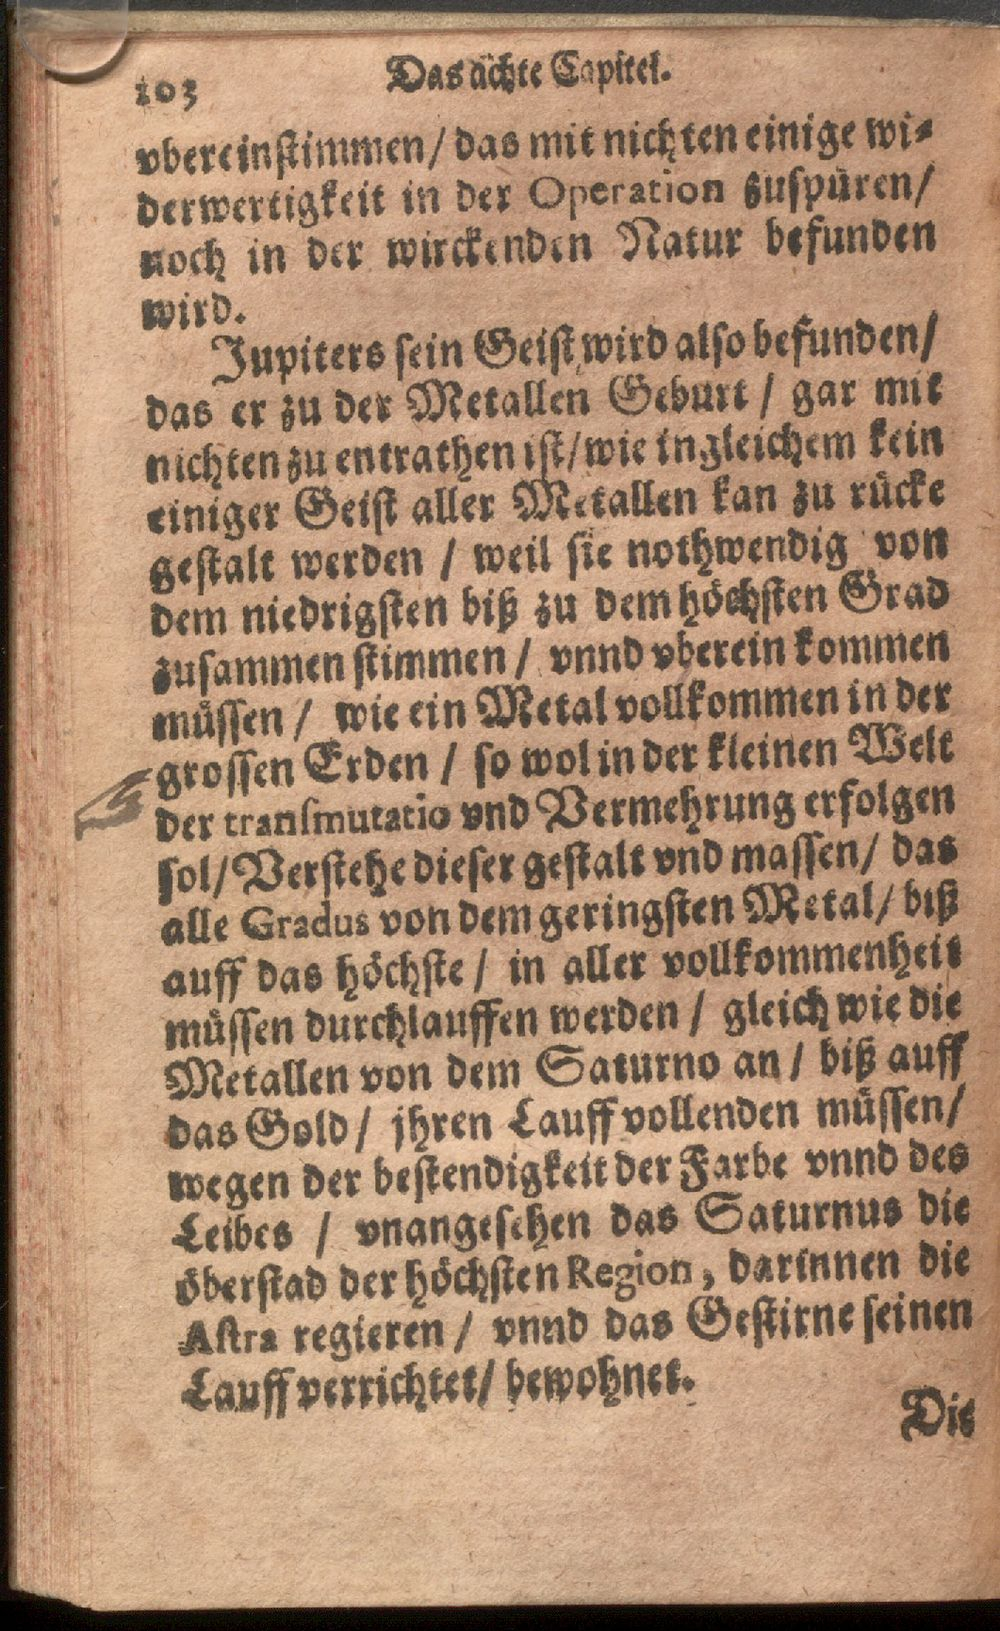 103 Das achte Capitel.
vbereinstimmen/ das mit nichten einige wi-
derwertigkeit in der Operation zuspüren/
noch in der wirckenden Natur befunden
wird.
Jupiters sein Geist wird also befunden/
das er zu der Metallen Geburt / gar mit
nichten zu entrathen ist/ wie ingleichem kein
einiger Geist aller Metallen kan zu rücke
gestalt werden / weil sie nothwendig von
dem niedrigsten biß zu dem höchsten Grad
zusammen stimmen / vnnd vberein kommen
müssen / wie ein Metal vollkommen in der
grossen Erden / so wol in der kleinen Welt
der transmutatio vnd Vermehrung erfolgen
sol/ Verstehe dieser gestalt vnd massen/ das
alle Gradus von dem geringsten Metal/ biß
auff das höchste / in aller vollkommenheit
müssen durchlauffen werden / gleich wie die
Metallen von dem Saturno an / biß auff
das Gold / jhren Lauff vollenden müssen/
wegen der bestendigkeit der Farbe vnnd des
Leibes / vnangesehen das Saturnus die
öberstad der höchsten Region, darinnen die
Astra regieren / vnnd das Gestirne seinen
Lauff verrichtet/ bewohnet.
Die